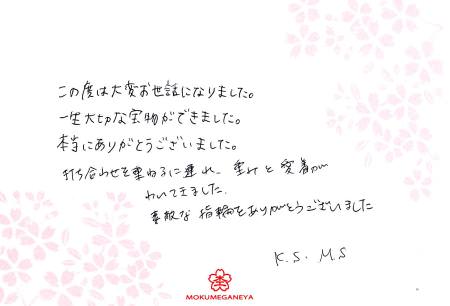 この度は大変お世話になりました。
一生大切な宝物ができました。
本当にありがとうございました。
打ち合わせを重ねるに連れ、重みと愛着が
わいてきました.
素敵な指輪をありがとうございました
K.S. M.S
MOKUMEGANEYA